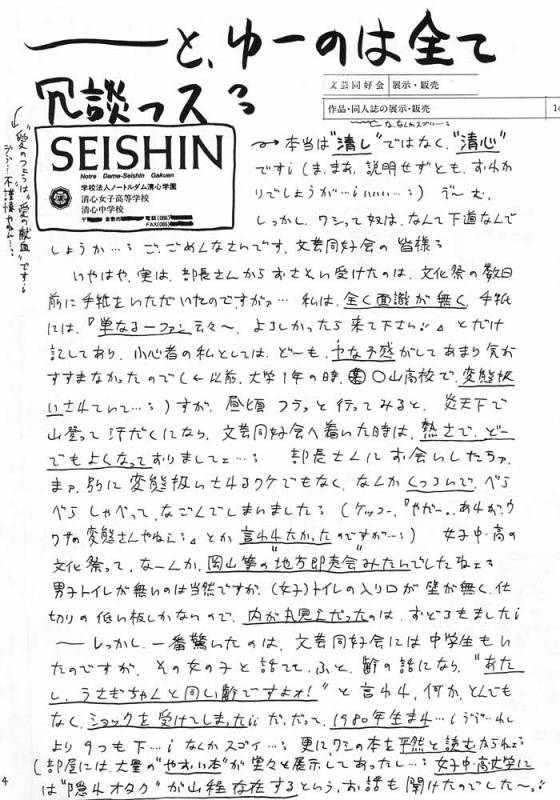 ――と、ゆーのは全て
冗談っス
文芸同好会 展示・販売
作品・同人誌の展示・販売
14
SEISHIN
Notre Dame-Seishin Gakuen
学校法人ノートルダム清心学園
清心女子高等学校
清心中学校
電話(086)
FAX(086)
→本当は"清し"ではなく、"清心"
です!(ま、まあ、説明せずとも、おわか
りでしょうが…!いいい…:)でーも、
しっかし、ワシって奴は、なんて下道なんで
しょうか…:ご、ごめんなさいです、文芸同好会の皆様:
いやはや、実は、部長さんからおさとい受けたのは、文化祭の数日
前に手紙をいただいたのですがァ… 私は、全く面識が無く、手紙
には、『単なる一ファン云々〜、よろしかったら来て下さい』とだけ
記してあり、小心者の私としては、どーも、ヤな予感がしてあまり気が
すすまなかったので(←以前、大学1年の時、○山高校で、変態扱
いされていて…:)すが、昼頃フラっと行ってみると、炎天下で
山登って汗だくになり、文芸同好会へ着いた時は、熱さで、どー
でもよくなっておりましてェ…: 部長さんにお会いしたらァ、
まァ、別に変態扱いされるワケでもなく、なんかくつろいで、べら
べらしゃべって、なごんでしまいました:(ケッコー、『やだー。あれが、ウ
ワサの変態さんやねえ:』とか言われたかったのですが…:) 女子中・高の
文化祭って、なーんか、岡山等の"地方即売会"みたいでしたねェ:
男子トイレが無いのは当然ですが、(女子)トイレの入り口が壁が無く、仕
切りの低い板しかないので、内が丸見えだったのは、おどろきました!
――しっかし、一番驚いたのは、文芸同好会には中学生もい
たのですが、その女の子と話てて、ふと、齢の話になり、"あた
し、うさぎちゃんと同じ齢ですよォ!"と言われ、何か、とんでも
なく、ショックを受けてしまった!!だ、だって、1980年生まれ…!
より9つも下…!なんかスゴイ…: 更に、ワシの本を平然と読むかられェ:
(部屋には、大量の"やおい本"が堂々と展示してあったし…:女子中・高大学に
は"隠れオタク"が山程存在するという、お話も聞けたのでした〜。